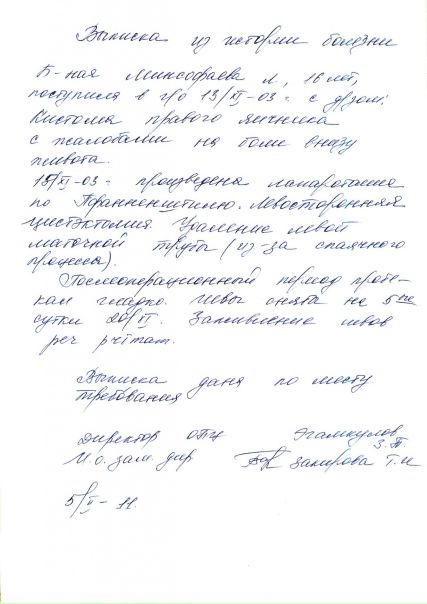 Выписка из истории болезни
Б-ная Минсафаева Л, 16 лет,
поступила в г/о 13/XI-03 г. с д/зом:
Кистома правого яичника
с жалобами на боли внизу
живота.
15/XI-03 г произведена лапаротомия
по Пфанненштилю. Левосторонняя
цистэктомия. Удаление левой
маточной трубы (из-за спаячного
процесса).
Послеоперационный период проте-
кал гладко. Швы сняты на 5-ые
сутки 20/XI. Заживление швов
per primam.
Выписка дана по месту
требования
Директор ОПЦ Эгамкулов
З.Т.
И.о. зам. дир Закирова Т.И
5/V - 11.